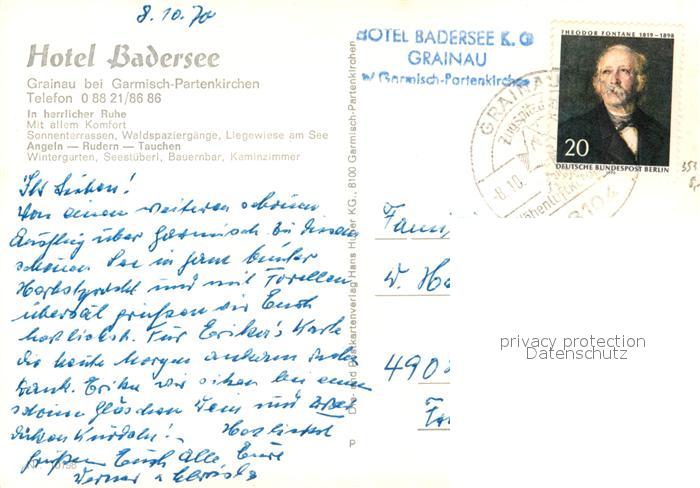 8.10.70
Hotel Badersee
Grainau bei Garmisch-Partenkirchen
Telefon 0 88 21/86 86
In herrlicher Ruhe
Mit allem Komfort
Sonnenterrassen, Waldspaziergänge, Liegewiese am See
Angeln — Rudern — Tauchen
Wintergarten, Seestüberl, Bauernbar, Kaminzimmer
Ihr Lieben!
Von einem weiteren schönen
Ausflug über Garmisch zu diesem
schönen See in ganz bunter
Herbstpracht und mit Forellen
überall grüßen wir Euch
herzlichst. Für Erika's Karte
die heute Morgen ankam vielen
Dank. Erika wir sitzen bei einem
schönen Gläschen Wein und
dicken Knödeln! - Herzlichst
grüßen Euch alle Eure
Werner u.
HOTEL BADERSEE K. G
GRAINAU
b/ Garmisch-Partenkirchen
THEODOR FONTANE 1819–1898
20
DEUTSCHE BUNDESPOST BERLIN
GRAINAU
-8.10.
8104
Postkartenverlag Hans Huber KG., 8100 Garmisch-Partenkirchen
P
Fami
W. He
490
privacy protection
Datenschutz